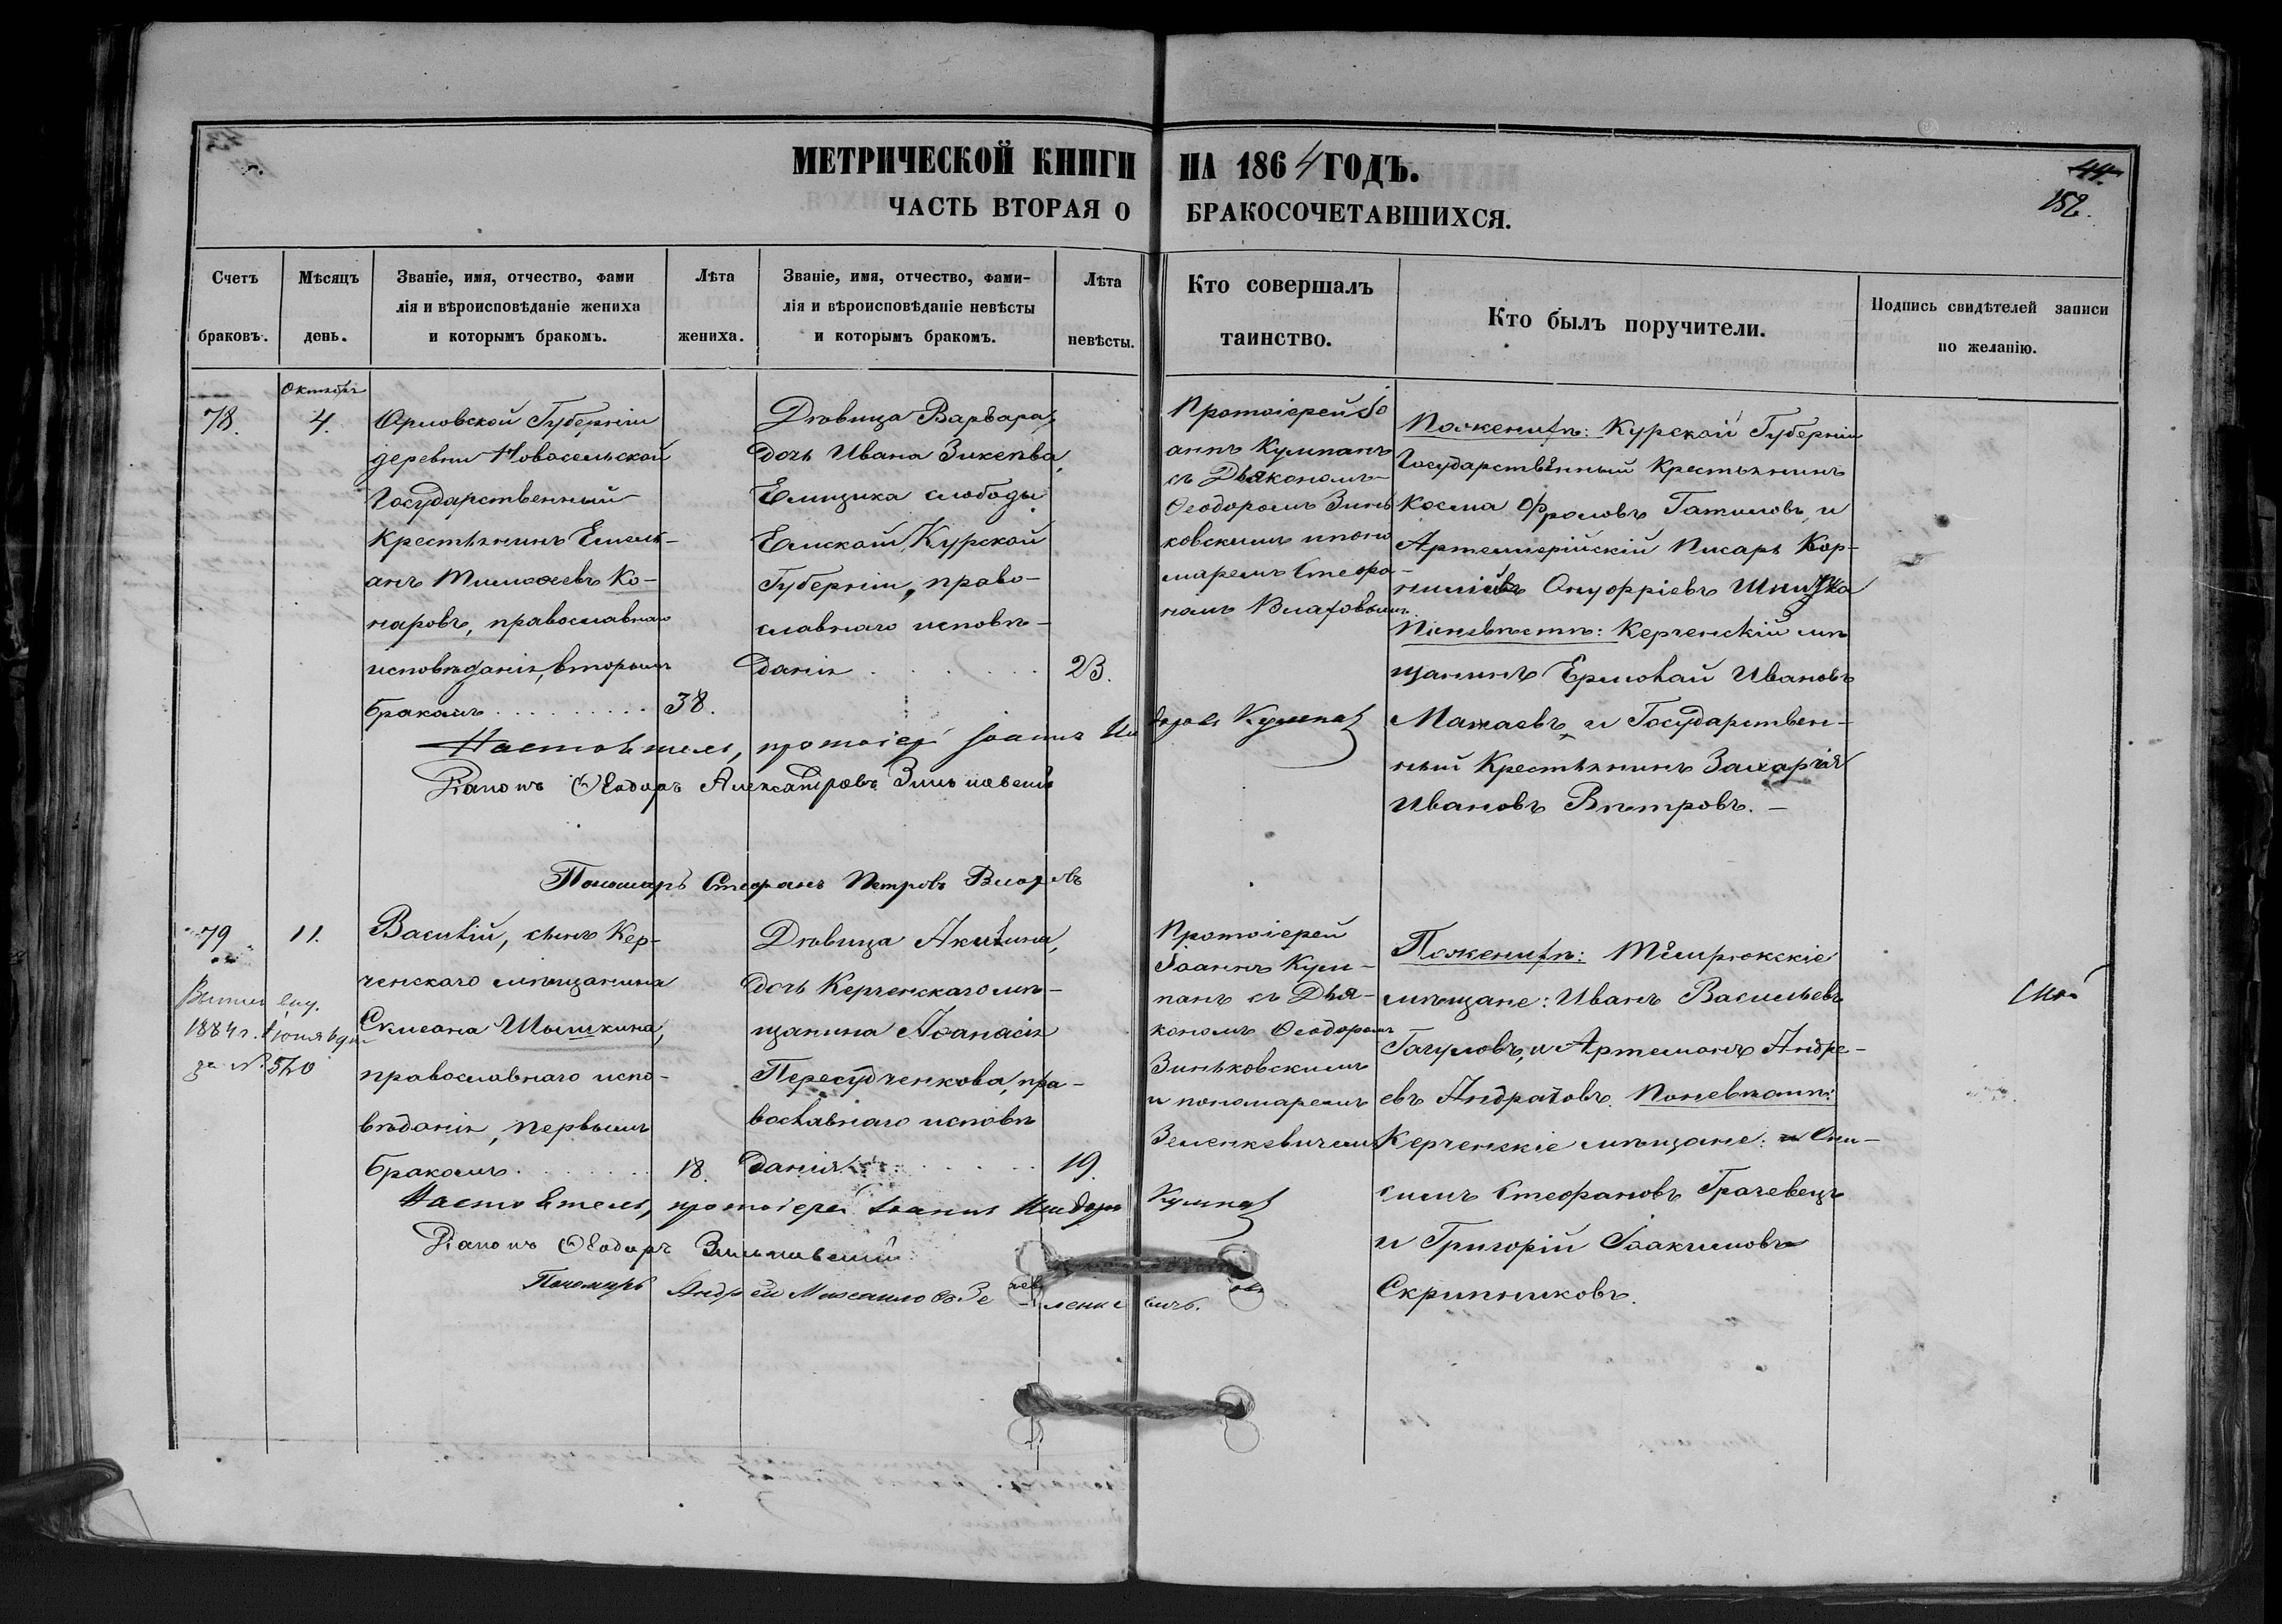 МЕТРИЧЕСКОЙ КНИГИ НА 1864 ГОДЪ.
ЧАСТЬ ВТОРАЯ О БРАКОСОЧЕТАВШИХСЯ.
44.
152.
Счетъ браковъ.
Мѣсяцъ день.
Званіе, имя, отчество, фами
лія и вѣроисповѣданіе жениха
и которымъ бракомъ.
Лѣта жениха.
Званіе, имя, отчество, фами-
лія и вѣроисповѣданіе невѣсты
и которымъ бракомъ.
Лѣта невѣсты.
Кто совершалъ
таинство.
Кто былъ поручители.
Подпись свидѣтелей записи
по желанію.
78.
Октябрь
4.
Орловской Губерніи
деревни Новосельской
Государственный
Крестьянинъ Емель-
анъ Тимоѳеевъ Ко-
наровъ, православнаго
исповѣданія, вторымъ
бракомъ
38.
Дѣвица Варвара,
дочь Ивана Зикеѣва,
Ямщика слободы
Ямской, Курской
Губерніи, право-
славнаго исповѣ-
данія
23.
Протоіерей Іо
аннъ Кумпанъ
съ Дьякономъ
Ѳеодоромъ Зинь
ковскимъ и поно
маремъ Стефа-
номъ Влазовымъ.
Пожениѣ: Курской Губерніи
Государственный Крестьянинъ
Косма Фроловъ Гатиловъ, и
Артеллерійскій Писарь Кор-
нилій Онуфріевъ
Поневѣстѣ: Керченскій мѣ
щанинъ Ермолай Ивановъ
Мажаевъ, и Государствен-
ный Крестьянинъ Захарій
Ивановъ Вѣтровъ.
Настоятель, протоіерей Іоаннъ Исидоровъ Кумпанъ
Діаконъ Ѳеодоръ Александровъ Зиньковскій
Пономарь Стефанъ Петровъ Влазовъ
79
11.
Василій, сынъ Кер-
ченскаго мѣщанина
Симеона Шышкина,
православнаго испо-
вѣданія, первымъ
бракомъ
18.
Дѣвица Акилина,
дочь Керченскаго мѣ-
щанина Аѳанасія
Пересудченкова, пра-
вославнаго исповѣ
данія
19.
Протоіерей
Іоаннъ Кум-
панъ съ Дья-
кономъ Ѳеодоромъ
Зиньковскимъ
и пономаремъ
Зеленкевичемъ
Пожениѣ: Темрюкскіе
мѣщане: Иванъ Васильевъ
и Артемонъ Андре-
евъ Андратовъ. Поневѣстѣ:
Керченскіе мѣщане: Они-
симъ Стефановъ Грачевецъ
и Григорій Іоакимовъ
Скрипниковъ.
1884 г. Іюня
за № 540
Настоятель, протоіерей Іоаннъ Исидоровъ Кумпанъ
Діаконъ Ѳеодоръ Зиньковскій
Пономарь Андрей Михаиловъ Зеленкевичъ.